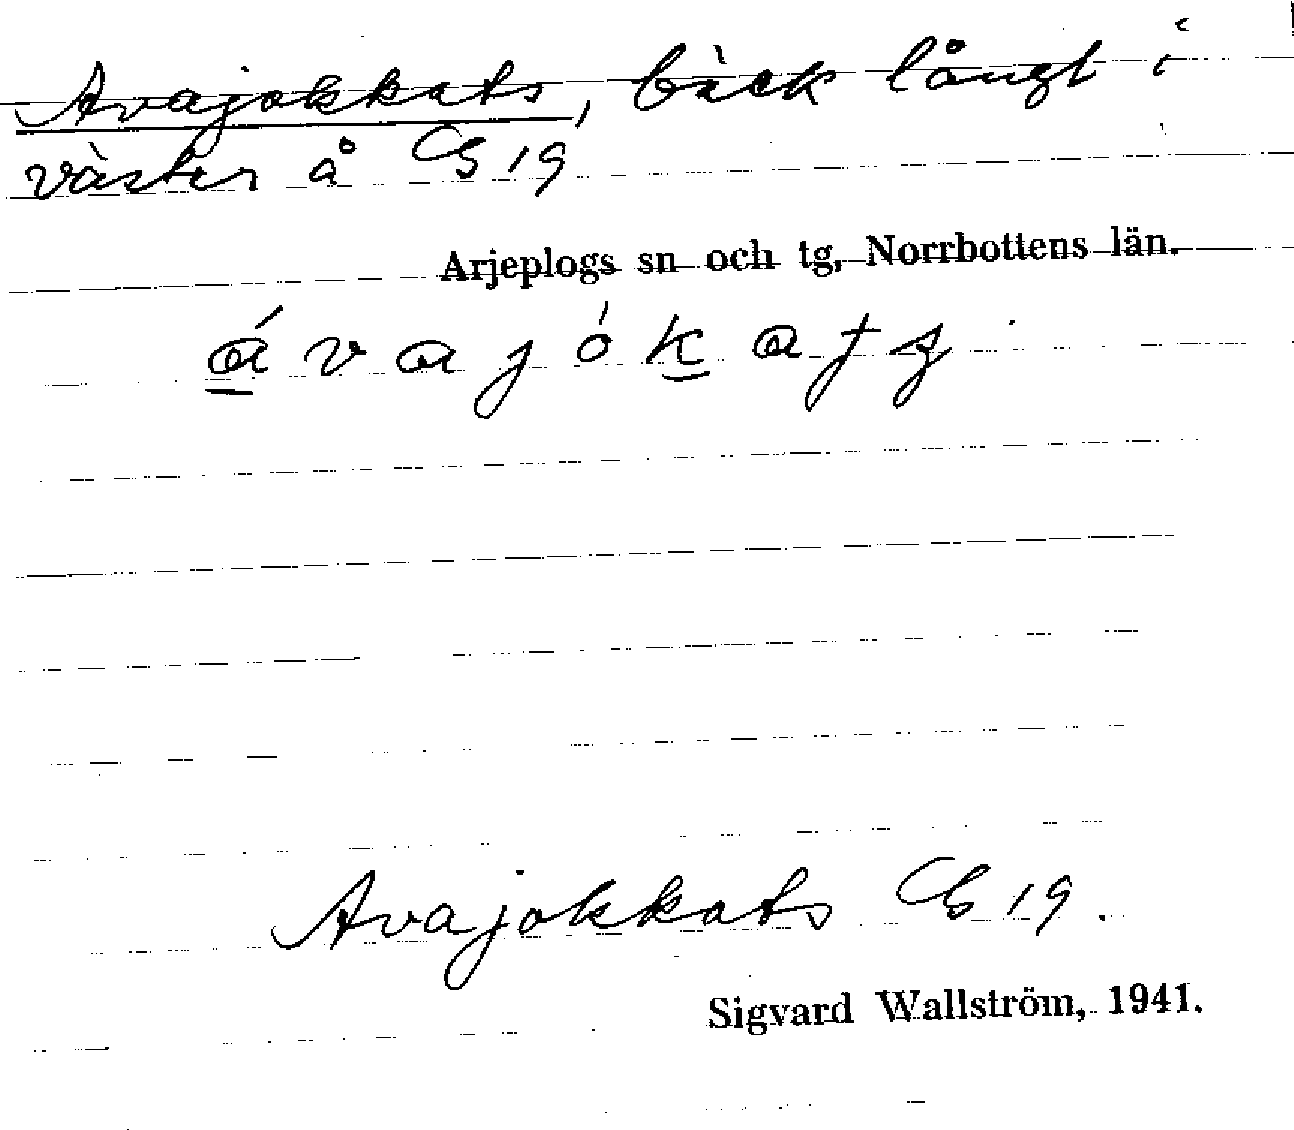 Avajokkats, bäck långt i
väster å G 19
Arjeplogs sn och tg, Norrbottens län.
á̱ v a j ó ḵ a t s
Avajokkats G 19.
Sigvard Wallström, 1941.